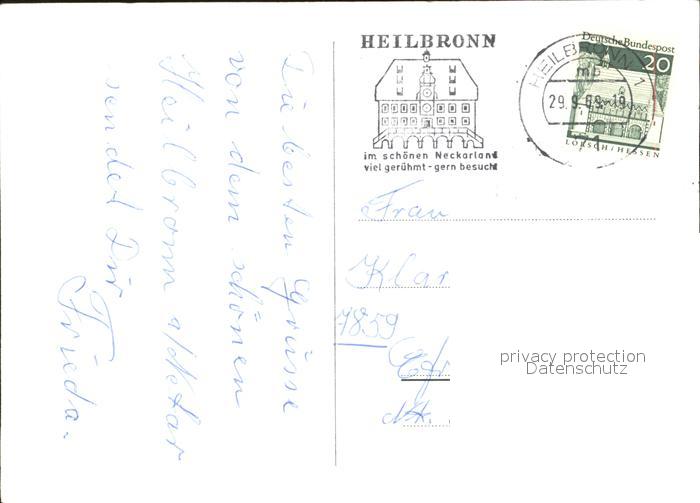 Die besten Grüsse
von dem schönen
Heilbronn a/Nekar
sendet Dir
Frieda.
HEILBRONN
im schönen Neckarland
viel gerühmt - gern besucht
HEILBRONN
mb
29.9.69.-19
Deutsche Bundespost
20
LORSCH/HESSEN
Frau
Klar
7859
Efr
privacy protection
Datenschutz